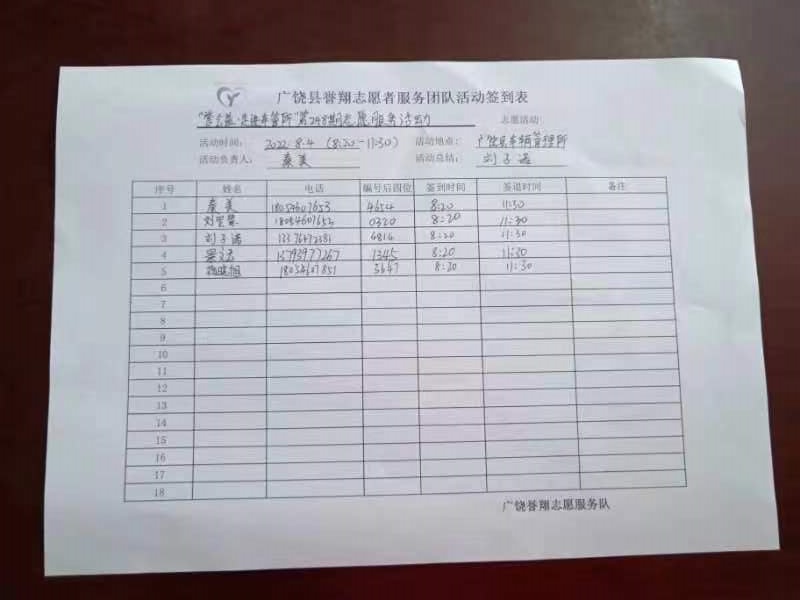 广饶县誉翔志愿者服务团队活动签到表
"誉公益·走进车管所"第248期志愿服务活动 志愿活动
活动时间： 2022.8.4 (8:20-11:30) 活动地点： 广饶县车辆管理所
活动负责人： 秦美 活动总结： 刘子诺
序号 姓名 电话 编号后四位 签到时间 签退时间 备注
1 秦美 18054607653 4654 8:20 11:30
2 18054607652 0320 8:20 11:30
3 刘子诺 4814 8:20 11:30
4 15793977267 1345 8:20 11:30
5 18054607851 3647 8:20 11:30
6
7
8
9
10
11
12
13
14
15
16
17
18
广饶誉翔志愿服务队